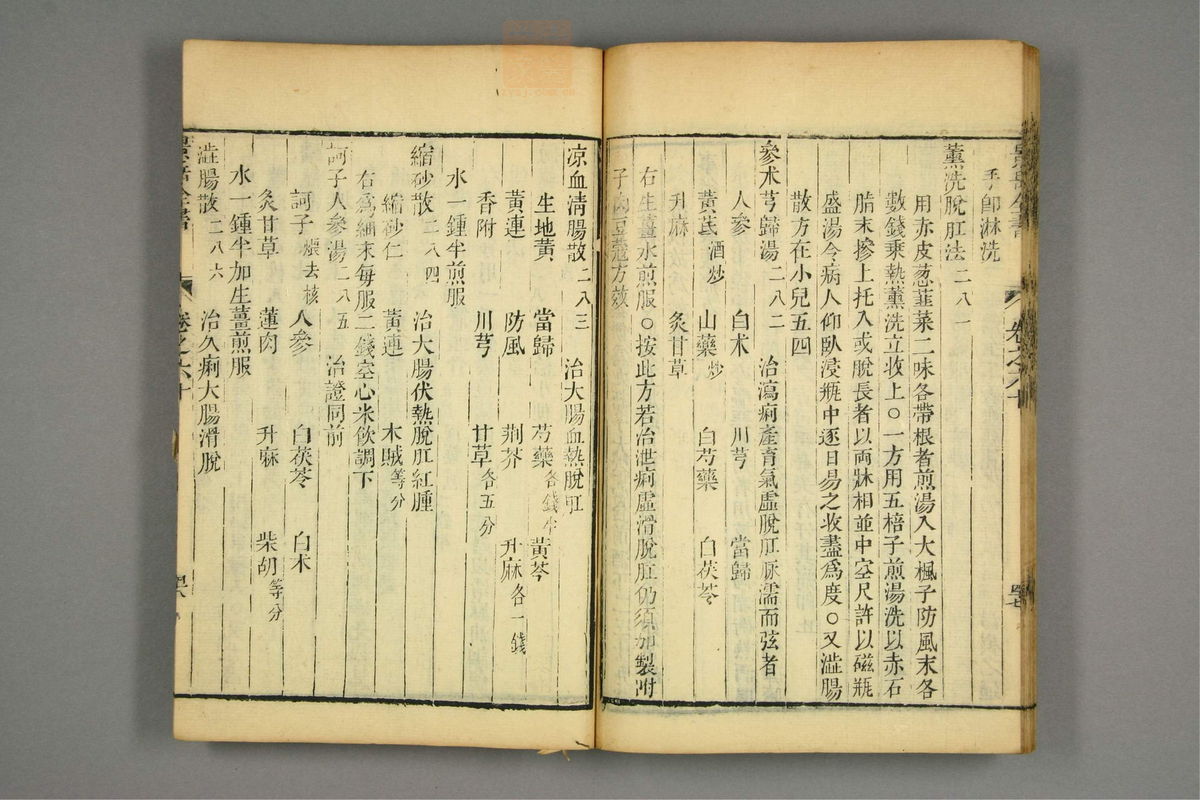 秀卽淋洗
薰洗脫肛法二八一
用赤皮葱韮菜二味各帶根者煎湯入大楓子防風末各
數錢乘熱薰洗立收上○一方用五棓子煎湯洗以赤石
脂末摻上托入或脫長者以兩牀相並中空尺許以磁瓶
盛湯令病人仰臥浸瓶中逐日易之收盡爲度○又澁腸
散方在小兒五四
參术芎歸湯二八二 治瀉痢產育氣虛脫肛脉濡而弦者
人參 白术 川芎 當歸
黃芪酒炒 山藥炒 白芍藥 白茯苓
升麻 炙甘草
右生薑水煎服○按此方若治泄痢虛滑脫肛仍須加製附
子肉荳蔻方效
凉血清腸散二八三 治大腸血熱脫肛
生地黃 當歸 芍藥各錢半 黃芩
黃連 防風 荆芥 升麻各一錢
香附 川芎 甘草各五分
水一鍾半煎服
縮砂散二八四 治大腸伏熱脫肛紅腫
縮砂仁 黃連 木賊等分
右爲細末每服二錢空心米飲調下
訶子人參湯二八五 治證同前
訶子煨去核 人參 白茯苓 白术
炙甘草 蓮肉 升麻 柴胡等分
水一鍾半加生薑煎服
澁腸散二八六 治久痢大腸滑脫
卷之六十